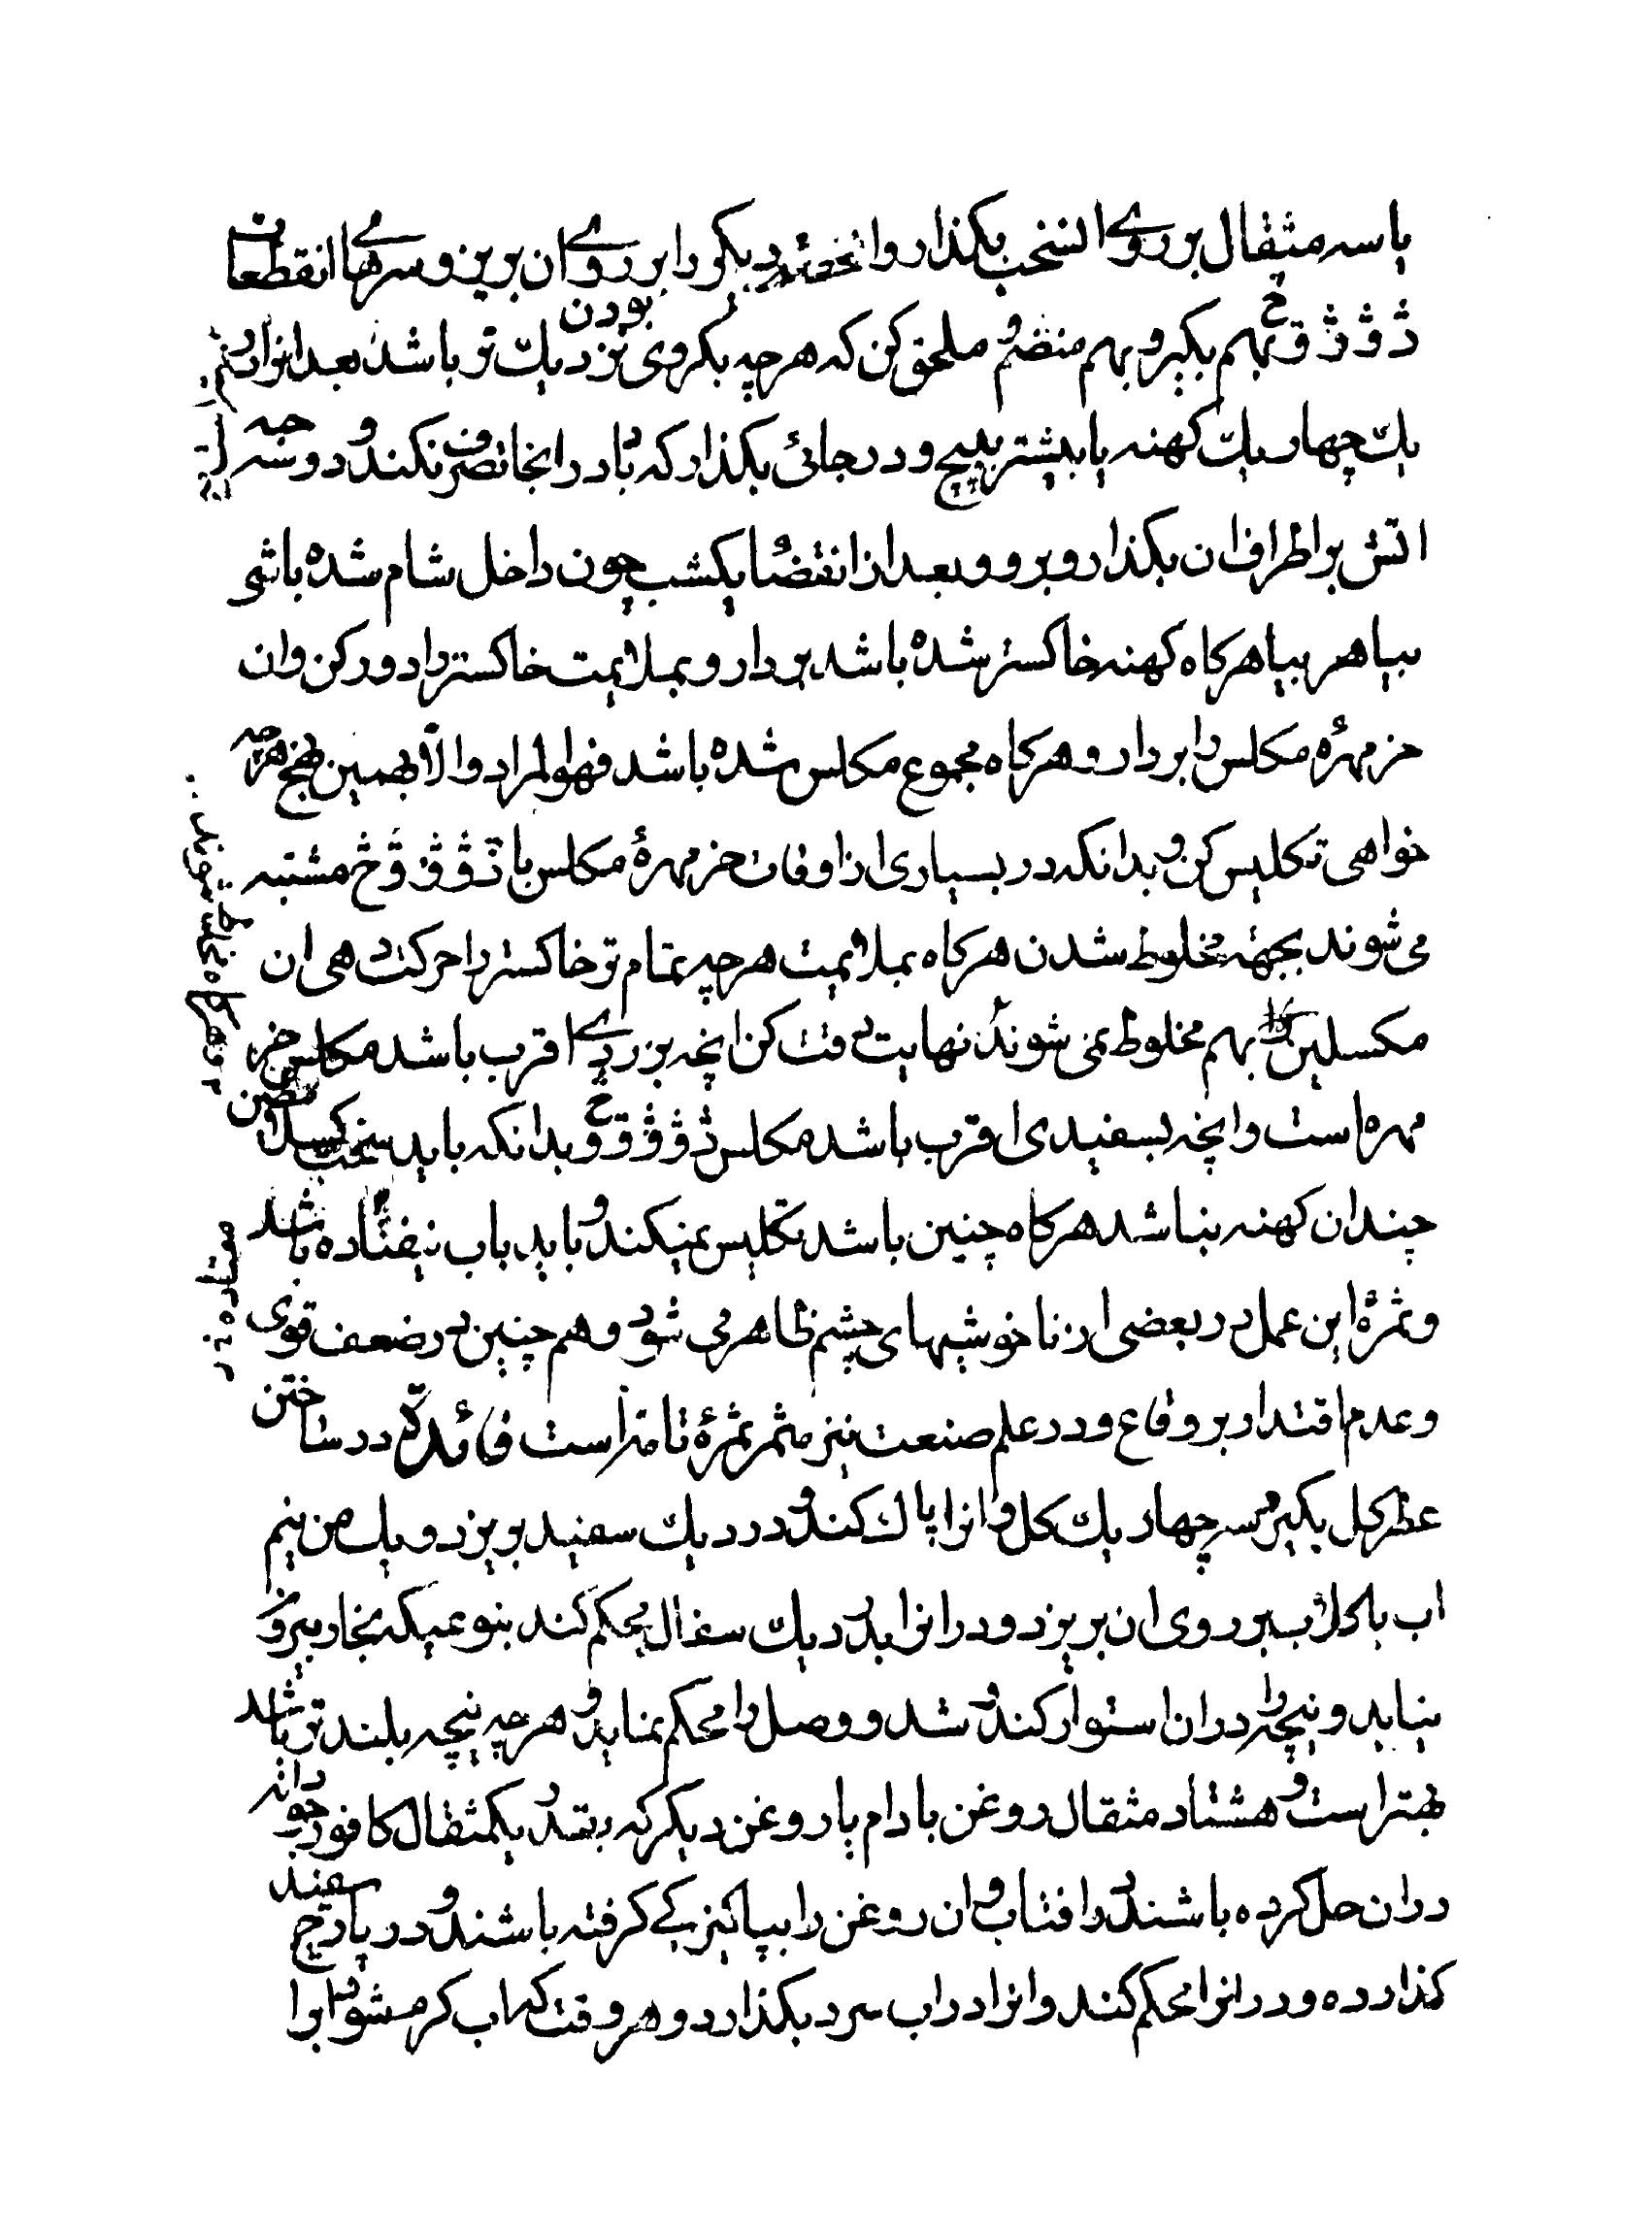 یا سه مثقال بر روی السنخب بکذار و انحصهٔ دیکر را بر روی ان بریز و سرهٔ اانقطعات
بهم بکیر و بهم منضم و ملحق کن که هرچه بکروی بودن نزدیك تر باشد بعد انرا در نیم
یك چهار یك کهنه یا بیشتر بپیچ و در جائی بکذار که باد در انجا تصرف نکند و دو سه حبه
اتش بر اطراف ان بکذار و برو و بعد از انقضا یکشب چون داخل شام شده باشی
بیا هر بیا هرکاه کهنه خاکستر شده باشد بردار و بملایمت خاکستر را دور کن و ان
خزمهرهٔ مکلس را بردار و هرکاه مجموع مکلس شده باشد فهو المراد و الا بهمین نهج هرچه
خواهی تکلیس کن و بدانکه در بسیاری از اوقات خزمهرهٔ مکلس با مشتبه
می شوند بجههٔ مخلوط شدن هرکاه بملایمت هرچه تمام تر خاکستر را حرکت دهی ان
مکسلین بهم مخلوط نمی شوند نهایت دقت کن انچه بزردی اقرب باشد مکلس خز
مهره است و انچه بسفیدی اقرب باشد مکلس و بدانکه باید سنخب
چندان کهنه نباشد هرکاه چنین باشد تکلیس نمیکند و باید باب نیفتاده باشد
و ثمرهٔ این عمل در بعضی از ناخوشیهای چشم ظاهر می شود و هم چنین در ضعف قوی
و عدم اقتدار بر وقاع و در علم صنعت نیز مثمر ثمرهٔ تامه است فائدة در ساختن
عطر کل بکیر سه چهار یك کل و انرا پاك کند و در دیك سفید بریزد و یك من نیم
اب یا کلاب بر روی ان بریزد و در انرا بدر دیك سفال محکم کند بنوعیکه بخار بیرون
نیاید و نیچه را در ان استوار کند و شد و وصل را محکم نماید و هرچه نیچه بلند تر باشد
بهتر است و هشتاد مثقال روغن بادام یا روغن دیکر که یکمثقال کافور جودانه
در ان حل کرده باشند در افتاب و ان روغن را بپاکیزکی کرفته باشند و در پارچ سفید
کذارده و در انرا محکم کند و انرا در اب سرد بکذارد و هر وقت که اب کرم شود انرا